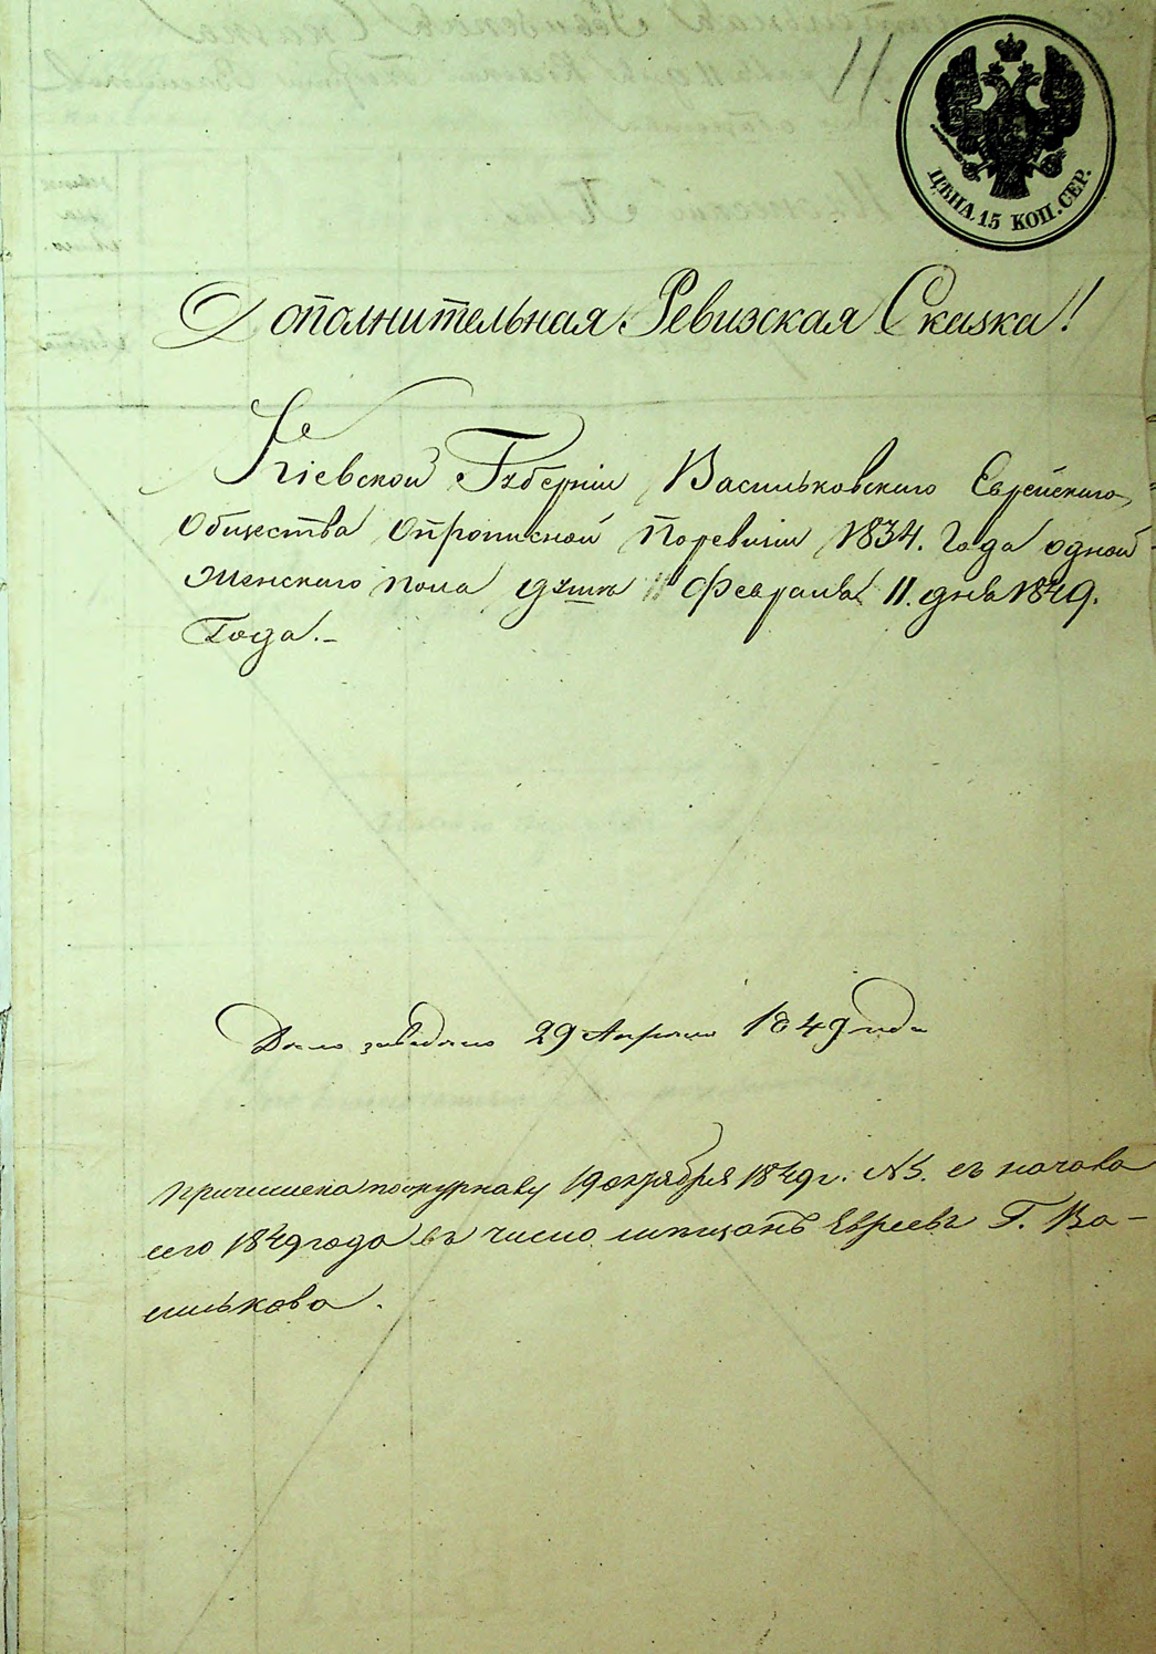 11.
ЦѢНА 15 КОП. СЕР.
Дополнительная Ревизская Сказка!
Кіевской Губерніи Васильковскаго Еврейскаго
Общества Опрописной Поревизіи 1834. Года одной
Женскаго пола душъ Февраля 11. дня 1849.
Года.-
Дело заведено 29 Апреля 1849 года
Причислена по журналу 19 октября 1849 г. № 5. съ начала
сего 1849 года въ число мещанъ Евреевъ Г. Ва-
силькова.